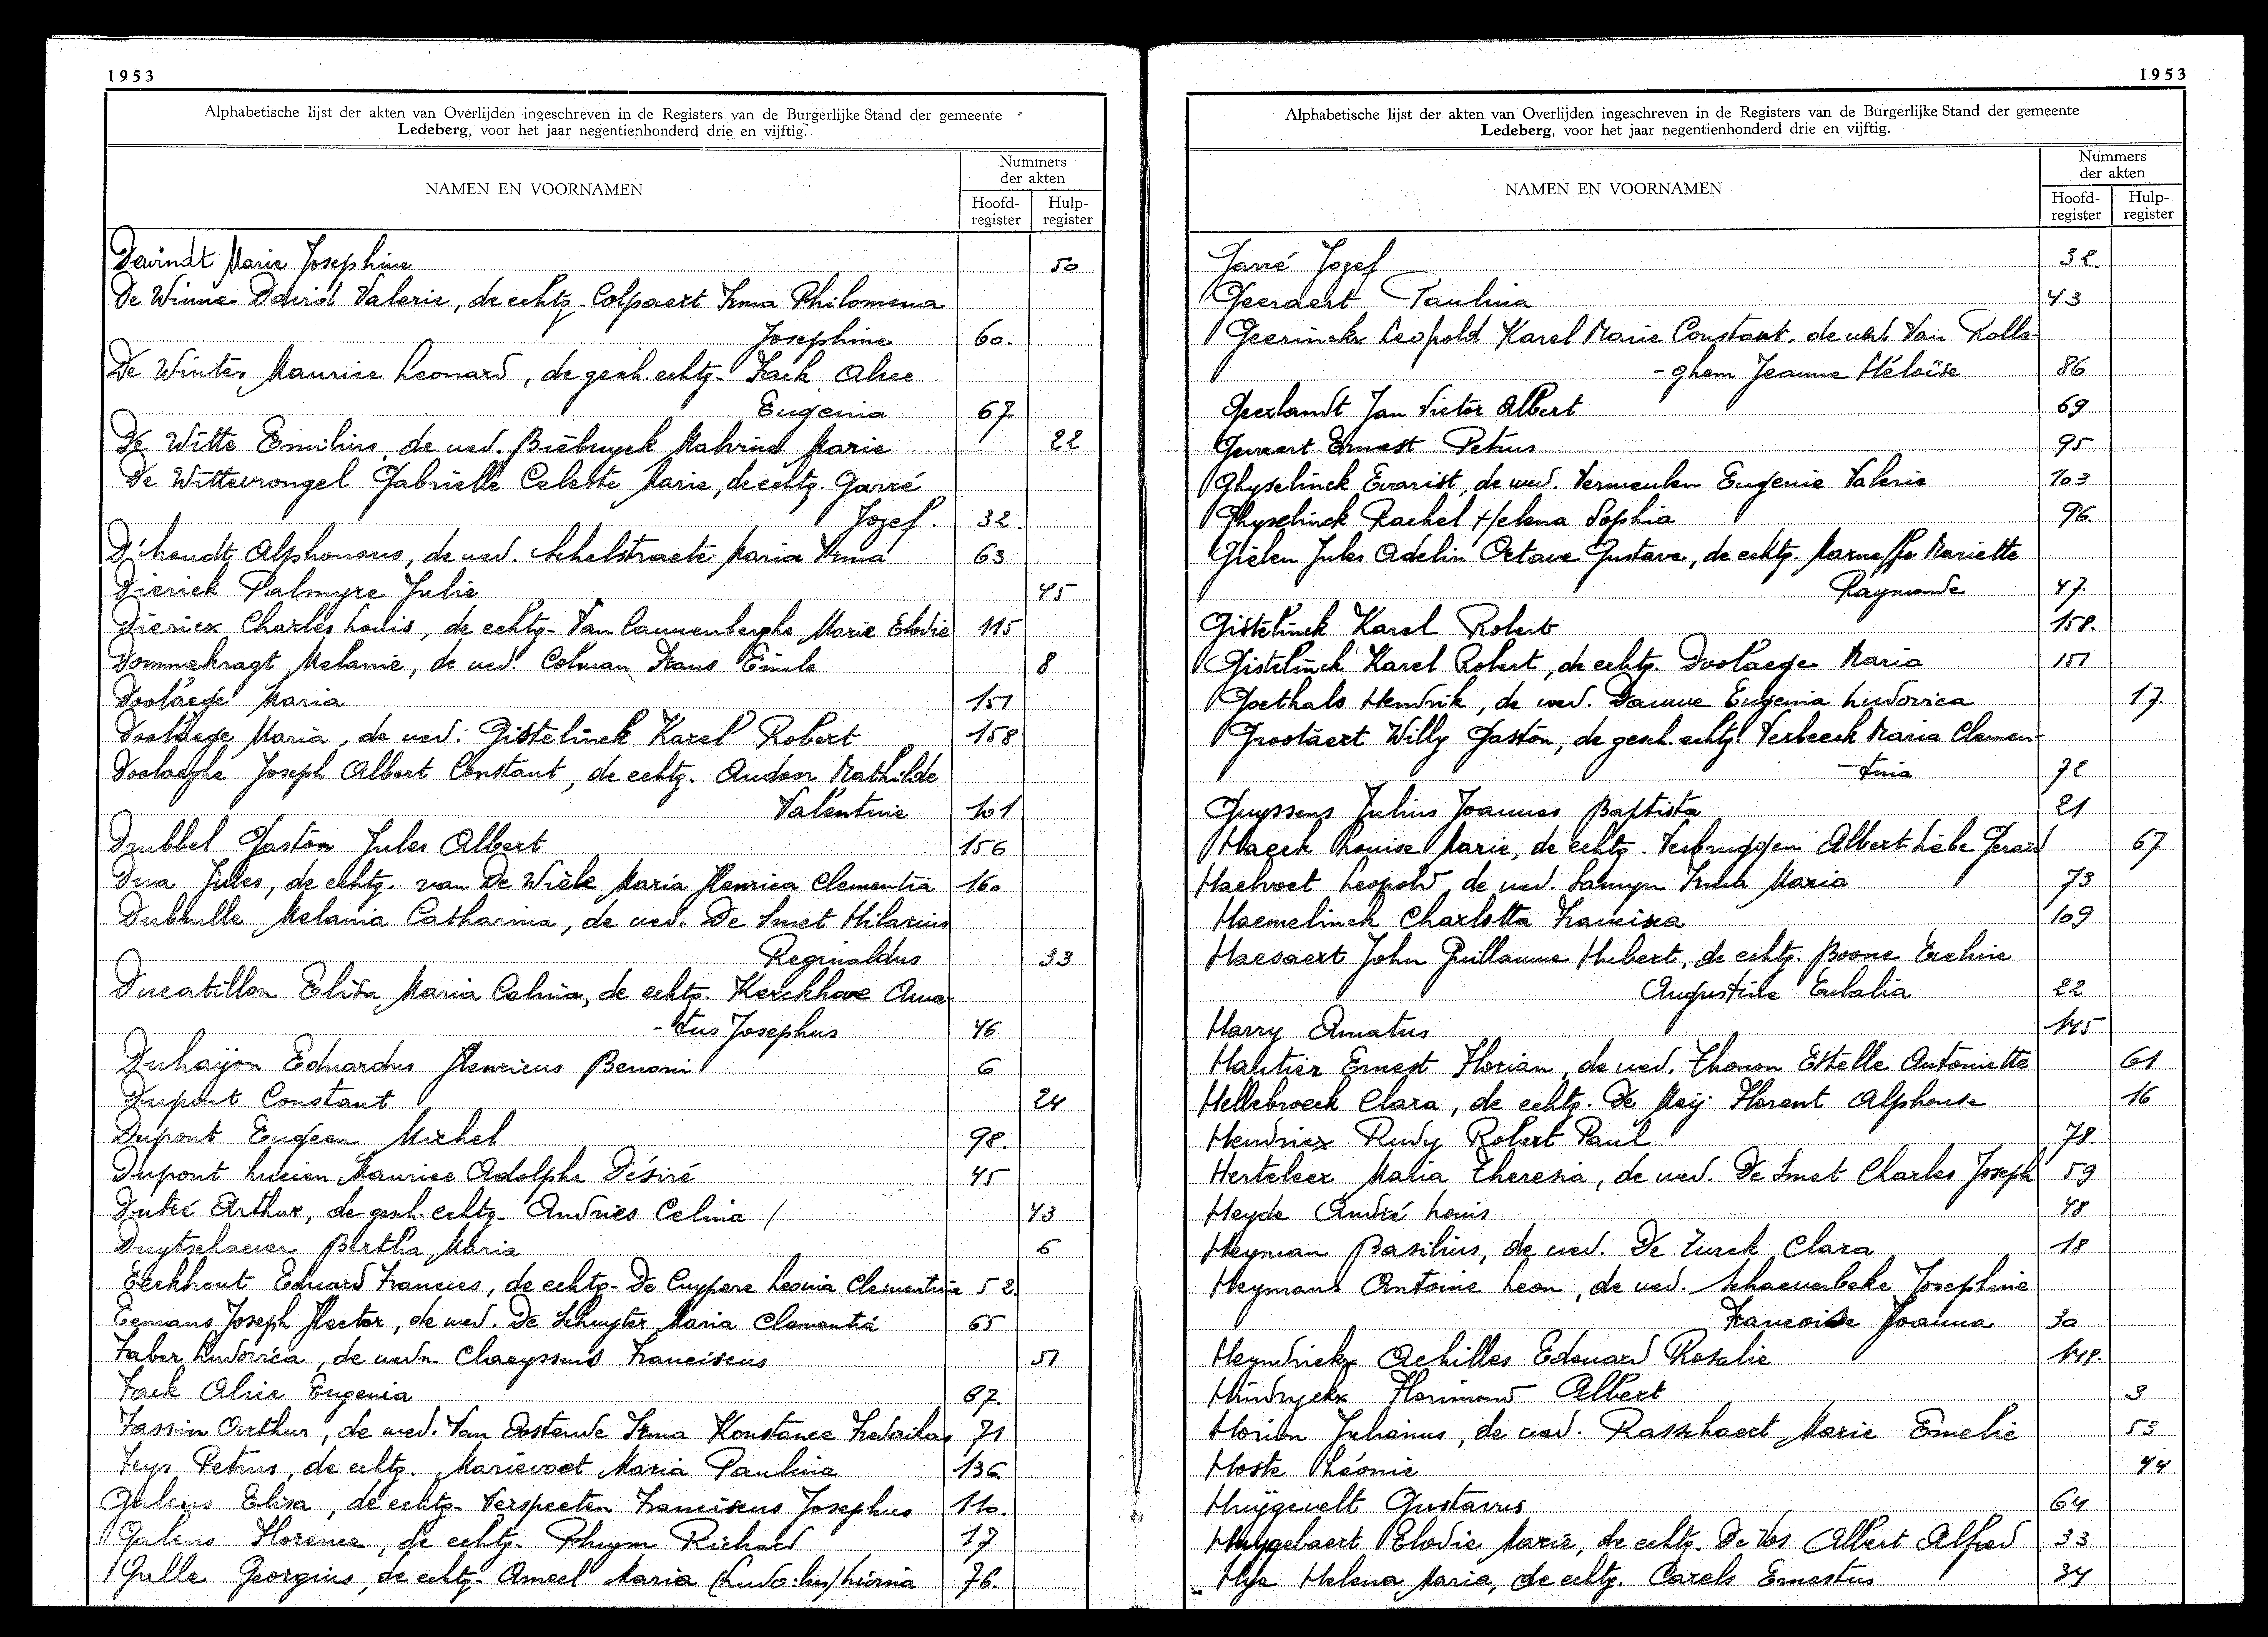 1953
Alphabetische lijst der akten van Overlijden ingeschreven in de Registers van de Burgerlijke Stand der gemeente
Ledeberg, voor het jaar negentienhonderd drie en vijftig.
NAMEN EN VOORNAMEN
Nummers
der akten
Hoofd-
register
Hulp-
register
Dewindt Marie Josephine 50
De Winne David Valerie, de echtg. Colpaert Irma Philomena
Josephine 60.
De Winter Maurice Leonard, de gesch. echtg. Fack Alice
Eugenia 67
De Witte Emilius, de wed. Biebuyck Mahrine Marie 22
De Wittevrongel Gabrielle Celeste Marie, de echtg. Garré
Jozef. 32.
D'hondt Alphonsus, de wed. Schelstraete Maria Irma 63
Dierick Palmyre Julie 45
Dierick Charles Louis, de echtg. Van Cauwenberghe Marie Elodie 115
Dommekragt Melanie, de wed. Colman Frans Emile 8
Doolaege Maria 151
Doolaege Maria, de wed. Gistelinck Karel Robert 158
Doolaeghe Joseph Albert Constant, de echtg. Audoor Mathilde
Valentine 101
Drubbel Gaston Jules Albert 156
Dua Jules, de echtg. van De Wiele Maria Henrica Clementia 160
Dubrulle Melania Catharina, de wed. De Smet Hilarius
Reginaldus 33
Ducatillon Elisa Maria Celina, de echtg. Kerckhove Ama-
-tus Josephus 46
Duhayon Eduardus Henricus Benoni 6
Dupont Constant 24
Dupont Eugeen Michel 98.
Dupont Lucien Maurice Adolphe Désiré 45
Dutré Arthur, de gesch. echtg. Andries Celina / 43
Duytschaever Bertha Maria 6
Eeckhout Eduard Francies, de echtg. De Cuypere Leonia Clementine 52.
Eemans Joseph Hector, de wed. De Schuyter Maria Clementia 65
Faber Ludovica, de wedn. Claeyssens Franciscus 51
Fack Alice Eugenia 67.
Fassin Arthur, de wed. Van Oostende Irma Konstance Frederika 71
Feys Petrus, de echtg. Marievoet Maria Paulina 136
Galens Elisa, de echtg. Verspeeten Franciscus Josephus 110.
Galens Florence, de echtg. Pluym Richard 17
Galle Georgius, de echtg. Ameel Maria (Ludo:ku) Lievina 76.
1953
Alphabetische lijst der akten van Overlijden ingeschreven in de Registers van de Burgerlijke Stand der gemeente
Ledeberg, voor het jaar negentienhonderd drie en vijftig.
NAMEN EN VOORNAMEN
Nummers
der akten
Hoofd-
register
Hulp-
register
Garré Jozef 32.
Geeraert Paulina 43
Geerinckx Leopold Karel Marie Constant, de wed. Van Rolle-
-ghem Jeanne Héloïse 86
Geerlandt Jan Victor Albert 69
Gevaert Ernest Petrus 95
Ghyselinck Evarist, de wed. Vermeulen Eugenie Valerie 103
Ghyselinck Rachel Helena Sophia 96.
Gielen Jules Adelin Octave Gustave, de echtg. Marneffe Mariette
Raymonde 47.
Gistelinck Karel Robert 158.
Gistelinck Karel Robert, de echtg. Doolaege Maria 151
Goethals Hendrik, de wed. Dauwe Eugenia Ludovica 17.
Grootaert Willy Gaston, de gesch. echtg. Verbeeck Maria Clemen-
-tina 72
Guyssens Julius Joannes Baptista 21
Haeck Louise Marie, de echtg. Verbruggen Albert Liebe Gerard 67
Haelvoet Leopold, de wed. Samyn Irma Maria 73
Haemelinck Charlotta Francisca 109
Haesaert John Guillaume Hubert, de echtg. Boone Eveline
Augustine Eulalia 22
Harry Amatus 145
Hautier Ernest Florian, de wed. Thonon Estelle Antoinette 61
Hellebroeck Clara, de echtg. De Meij Florent Alphonse 16
Hendrix Rudy Robert Paul 78.
Herteleer Maria Theresia, de wed. De Smet Charles Joseph 59
Heyde André Louis 48
Heyman Basilius, de wed. De Turck Clara 18
Heymans Antoine Leon, de wed. Schaeverbeke Josephine
Francoise Joanna 30
Heyndrickx Achilles Edouard Rosalie 148.
Hindryckx Florimond Albert 3
Horion Julianus, de wed. Rasschaert Marie Emelie 53
Hoste Léonie 44
Huÿgevelt Gustavus 64
Huygebaert Elodie Marie, de echtg. De Vos Albert Alfred 33
Hye Helena Maria, de echtg. Carels Ernestus 34